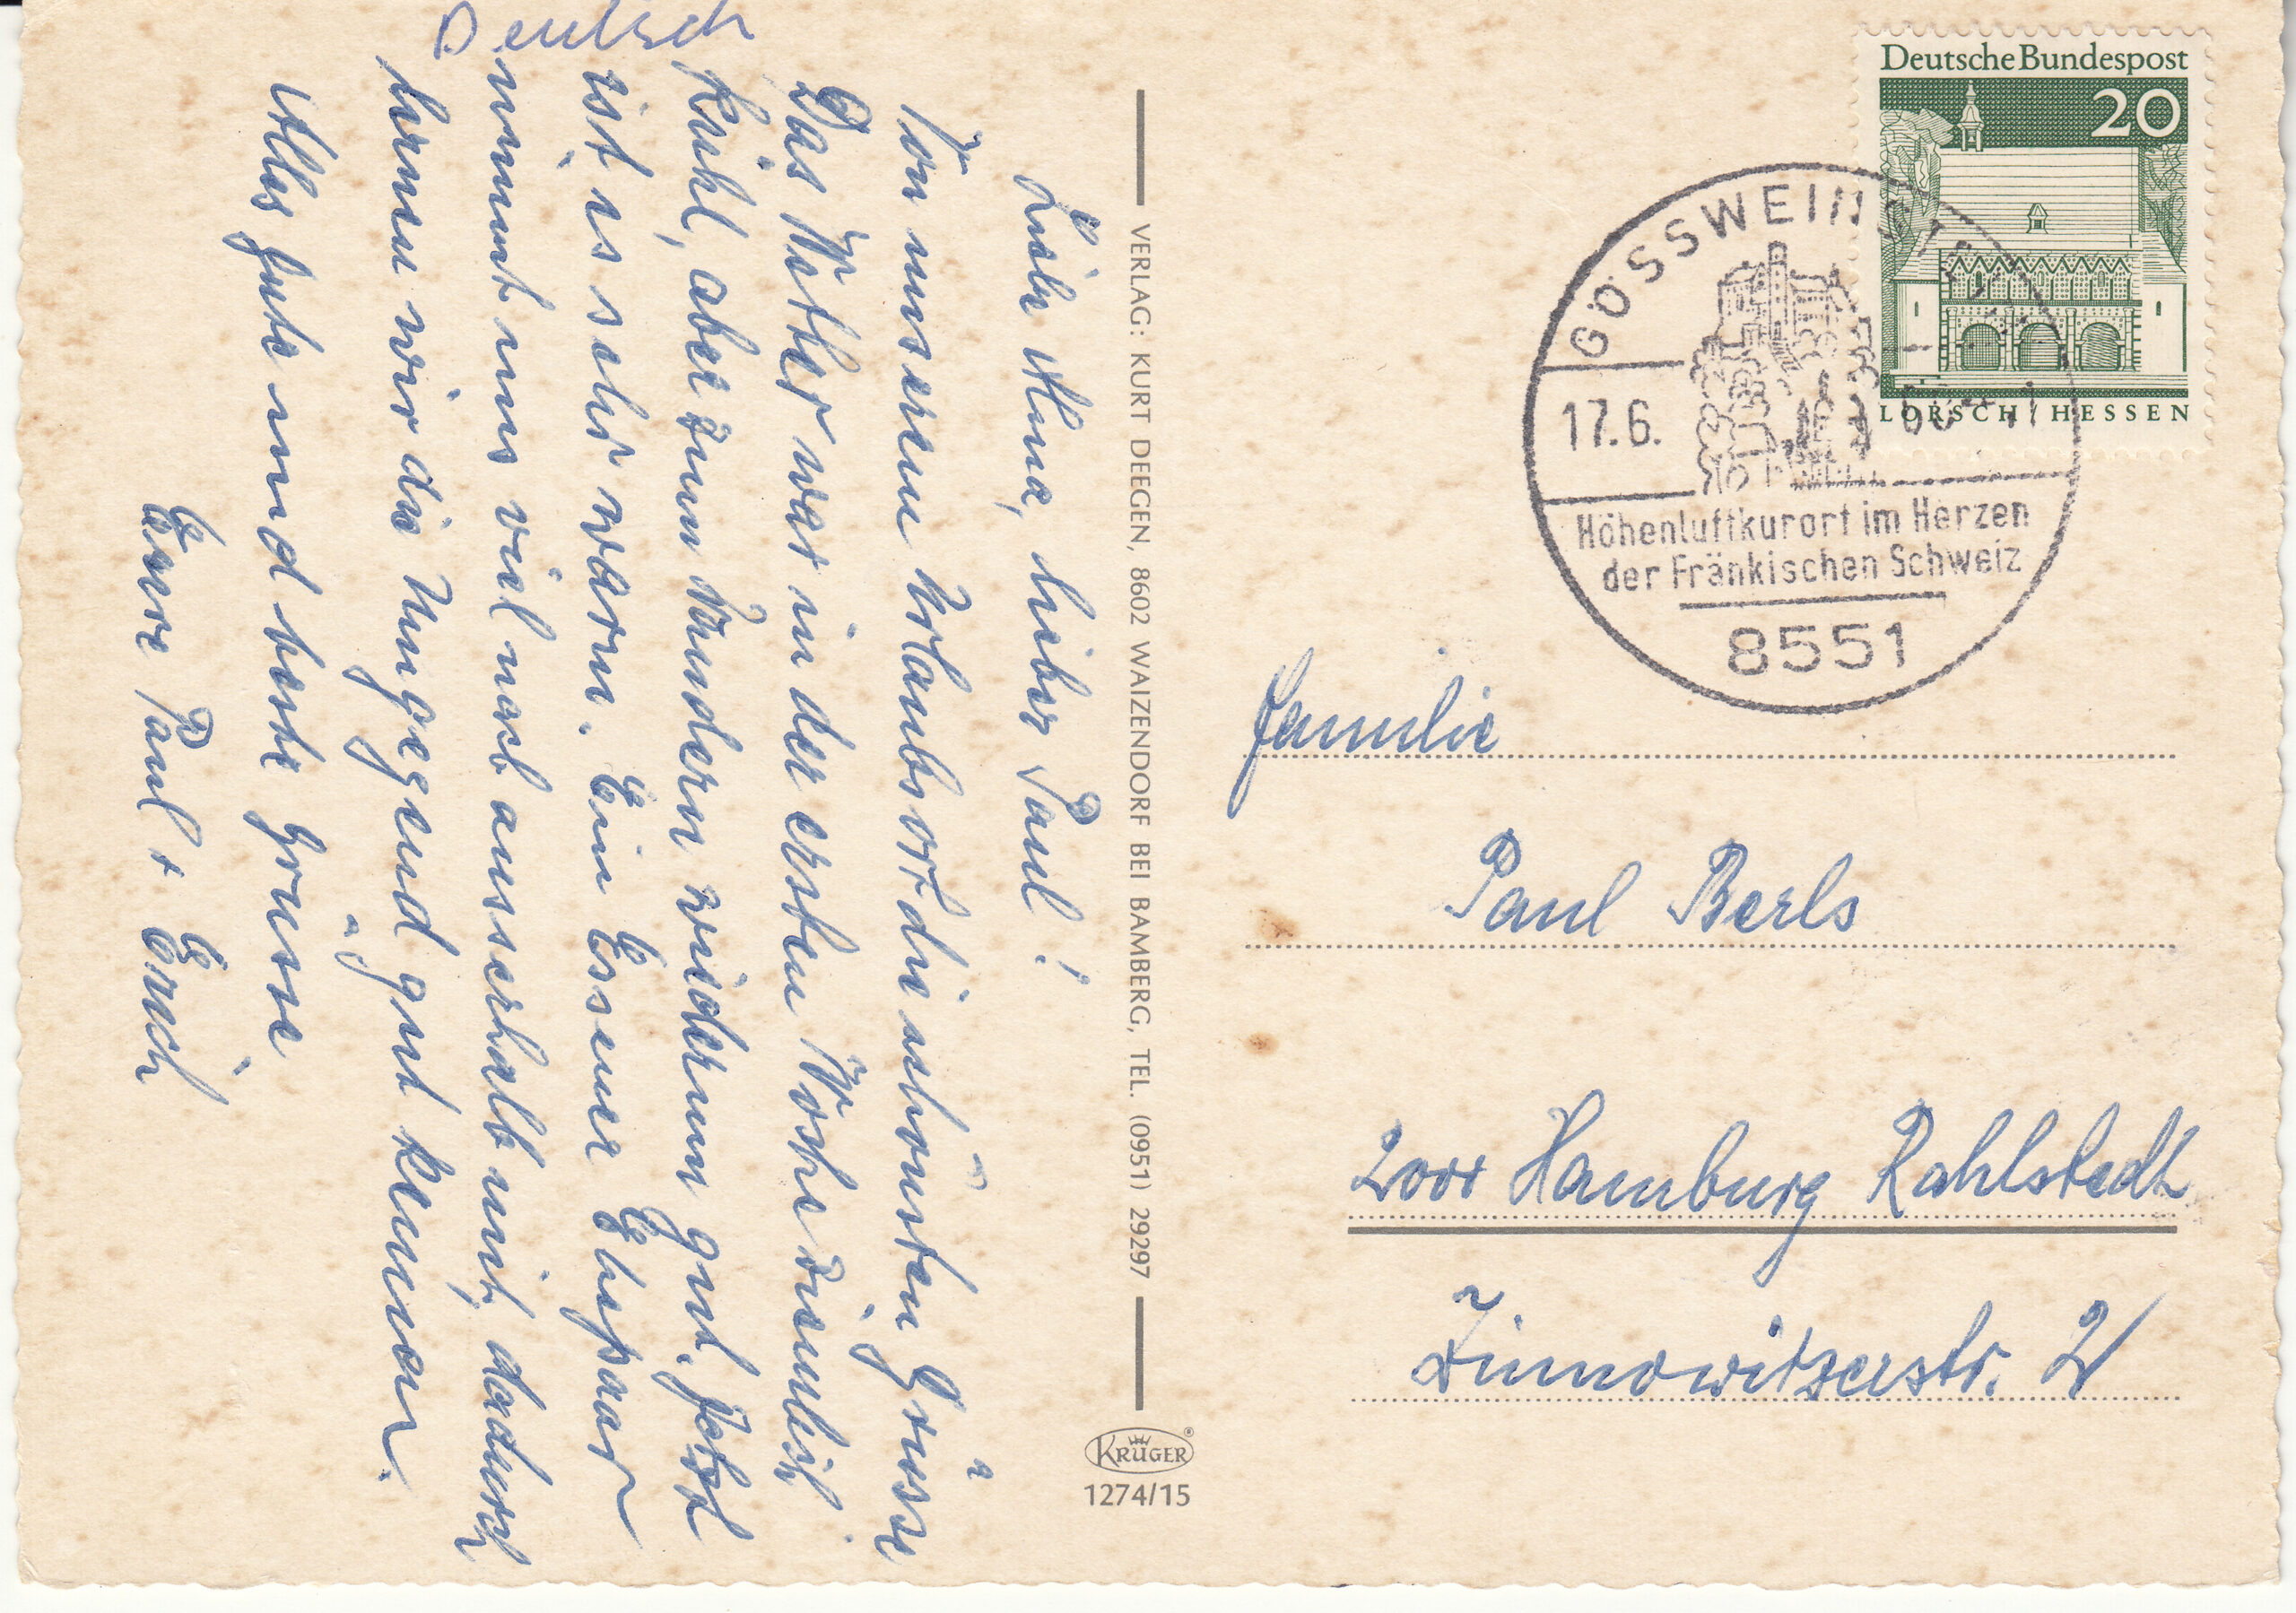 Deutsch
Liebe Anna, lieber Paul!
Von unserem Urlaubsort die schönsten Grüsse
Das Wetter war in der ersten Woche ziemlich
kühl, aber zum Wandern wiederum gut. Jetzt
ist es sehr warm. Ein Essener Ehepaar
nimmt uns viel nach ausserhalb mit, dadurch
lernen wir die Umgegend gut kennen.
Alles Gute und beste Grüsse
Eure Paul + Erich
VERLAG: KURT DEEGEN, 8602 WAIZENDORF BEI BAMBERG, TEL. (0951) 29297
KRÜGER®
1274/15
Deutsche Bundespost
20
LORSCH/HESSEN
GÖSSWEINSTEIN
17.6.
Höhenluftkurort im Herzen
der Fränkischen Schweiz
8551
Familie
Paul Berls
2000 Hamburg Rahlstedt
Zinnowitzerstr. 2